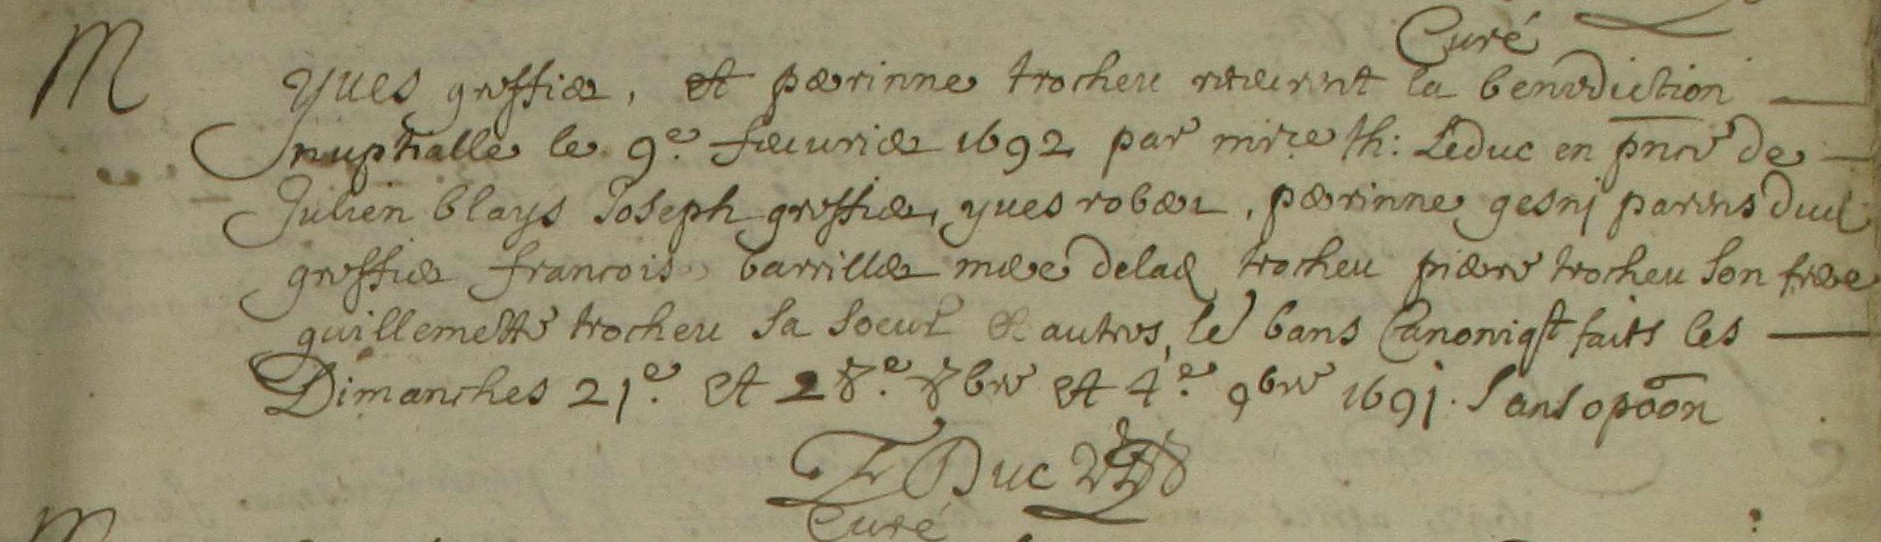 Curé
M
yves greffier, et perrinne trocheu receurent la benediction
nuptialle le 9.e feburier 1692 par mire th: Leduc en pnce de
Julien blays Joseph greffier, yves rober, perrinne gesnj parens dud
greffier francois barriller mere delad trocheu pierre trocheu son frere
guillemette trocheu sa soeur et autres, les bans Canoniqt faits les
Dimanches 21.e et 28.e 8bre et 4.e 9bre 1691. Sans opoon
T Le Duc
Curé
M